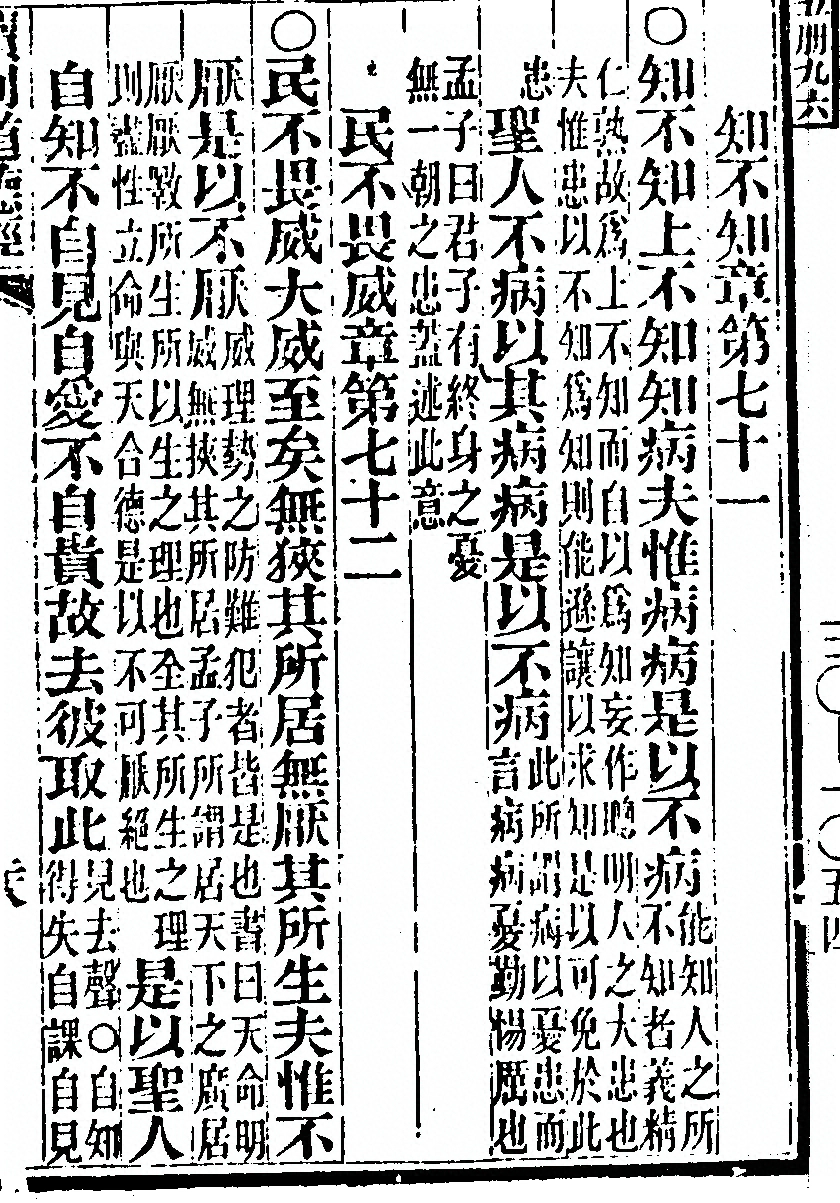 知不知章第七十一
〇知不知上不知知病夫惟病病是以不病
能知人之所
不知者義精
仁熟故爲上不知而自以爲知妄作聰明人之大患也
夫惟患以不知爲知則能遜讓以求知是以可免於此
患
聖人不病以其病病是以不病
此所謂病以憂患而
言病病憂勤惕厲也
孟子曰君子有終身之憂
無一朝之患蓋述此意
民不畏威章第七十二
〇民不畏威大威至矣無狹其所居無厭其所生夫惟不
厭是以不厭
威理勢之防難犯者皆是也書曰天命明
威無狹其所居孟子所謂居天下之廣居
厭厭斁所生所以生之理也全其所生之理
則盡性立命與天合德是以不可厭絕也
是以聖人
自知不自見自愛不自貴故去彼取此
見去聲〇自知
得失自課自見